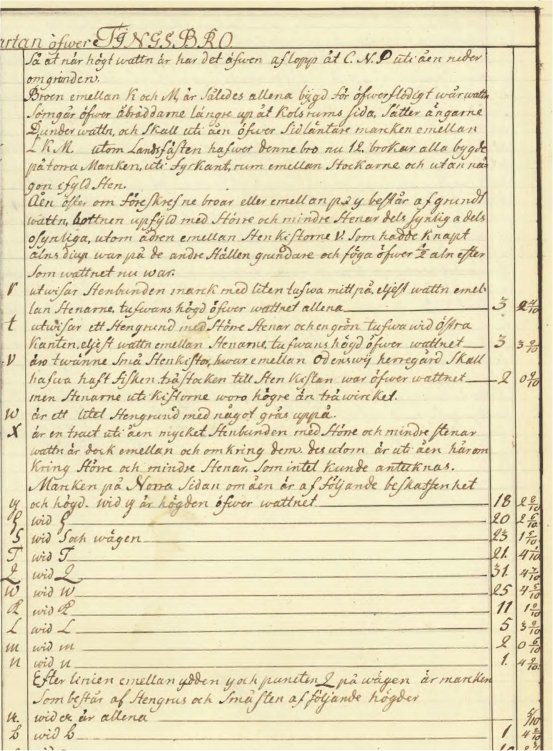 artan öfwer TINGSBRO
Så at när högt wattn är har det öfwen aflopp åt C.N.P uti åen neder
om grinden.
Broen emellan K och M, är således allena bygd för öfwerflödigt wårwattn
som går öfver åbräddarne längre up åt Kolsrums sida, sätter ängarne
under wattn, och skall uti åen öfwer sidläntare marken emellan
L K M. utom Landsfästen hafwer denne bro nu 12. brokar alla bygde
på torra Marken, uti fyrkant, rum emellan Stockarne och utan nå
gon ifyld sten.
Åen öster om föreskrefne broar eller emellan p å y består af grundt
wattn, bottnen upfyld med större och mindre Stenar dels synliga dels
osynliga, utom ådren emellan Stenkistorne V. som hadde knapt
alns diup war på de andre ställen grundare och föga öfwer ½ aln efter
som wattnet nu war.
r utwisar Stenbunden marck med liten tufwa mitt på, eljest wattn emel-
lan Stenarne, tufwans högd öfwer wattnet allena 3 2 4/10
t utwisar ett Stengrund med Större Stenar och en grön tufwa wid östra
Kanten, eljest wattn emellan Stenarne, tufwans högd öfwer wattnet 3 3 2/10
v äro twänne små Stenkistor, hwar emellan Odenswij herregård skall
hafwa haft fisken. trästocken till Stenkistan war öfwer wattnet 2 0 2/10
men Stenarne uti kistorne woro högre än träwircket.
w är ett litet Stengrund med något gräs uppå.
X är en tract uti åen mycket Stenbunden med större och mindre stenar
wattn är dock emellan och omkring dem. des utom är uti åen här om
kring större och mindre Stenar, som intet kunde antecknas.
Marken på Norra sidan om åen är af följande beskaffenhet
y och högd. wid y är högden öfwer wattnet 18 2 2/10
wid 20 2 6/10
S wid S och wägen 23 1 2/10
T wid T 21. 4 1/10
Q wid Q 31. 4 7/10
W wid W 25 4 5/10
R wid R 11 1 2/10
L wid L 5 3 2/10
m wid m 2 0 6/10
n wid n 1. 4 2/10
Efter linien emellan ydden y och puncten Q på wägen är marcken
som består af Stengrus och Små sten af följande högder
wid är allena /10
b wid b 1 4